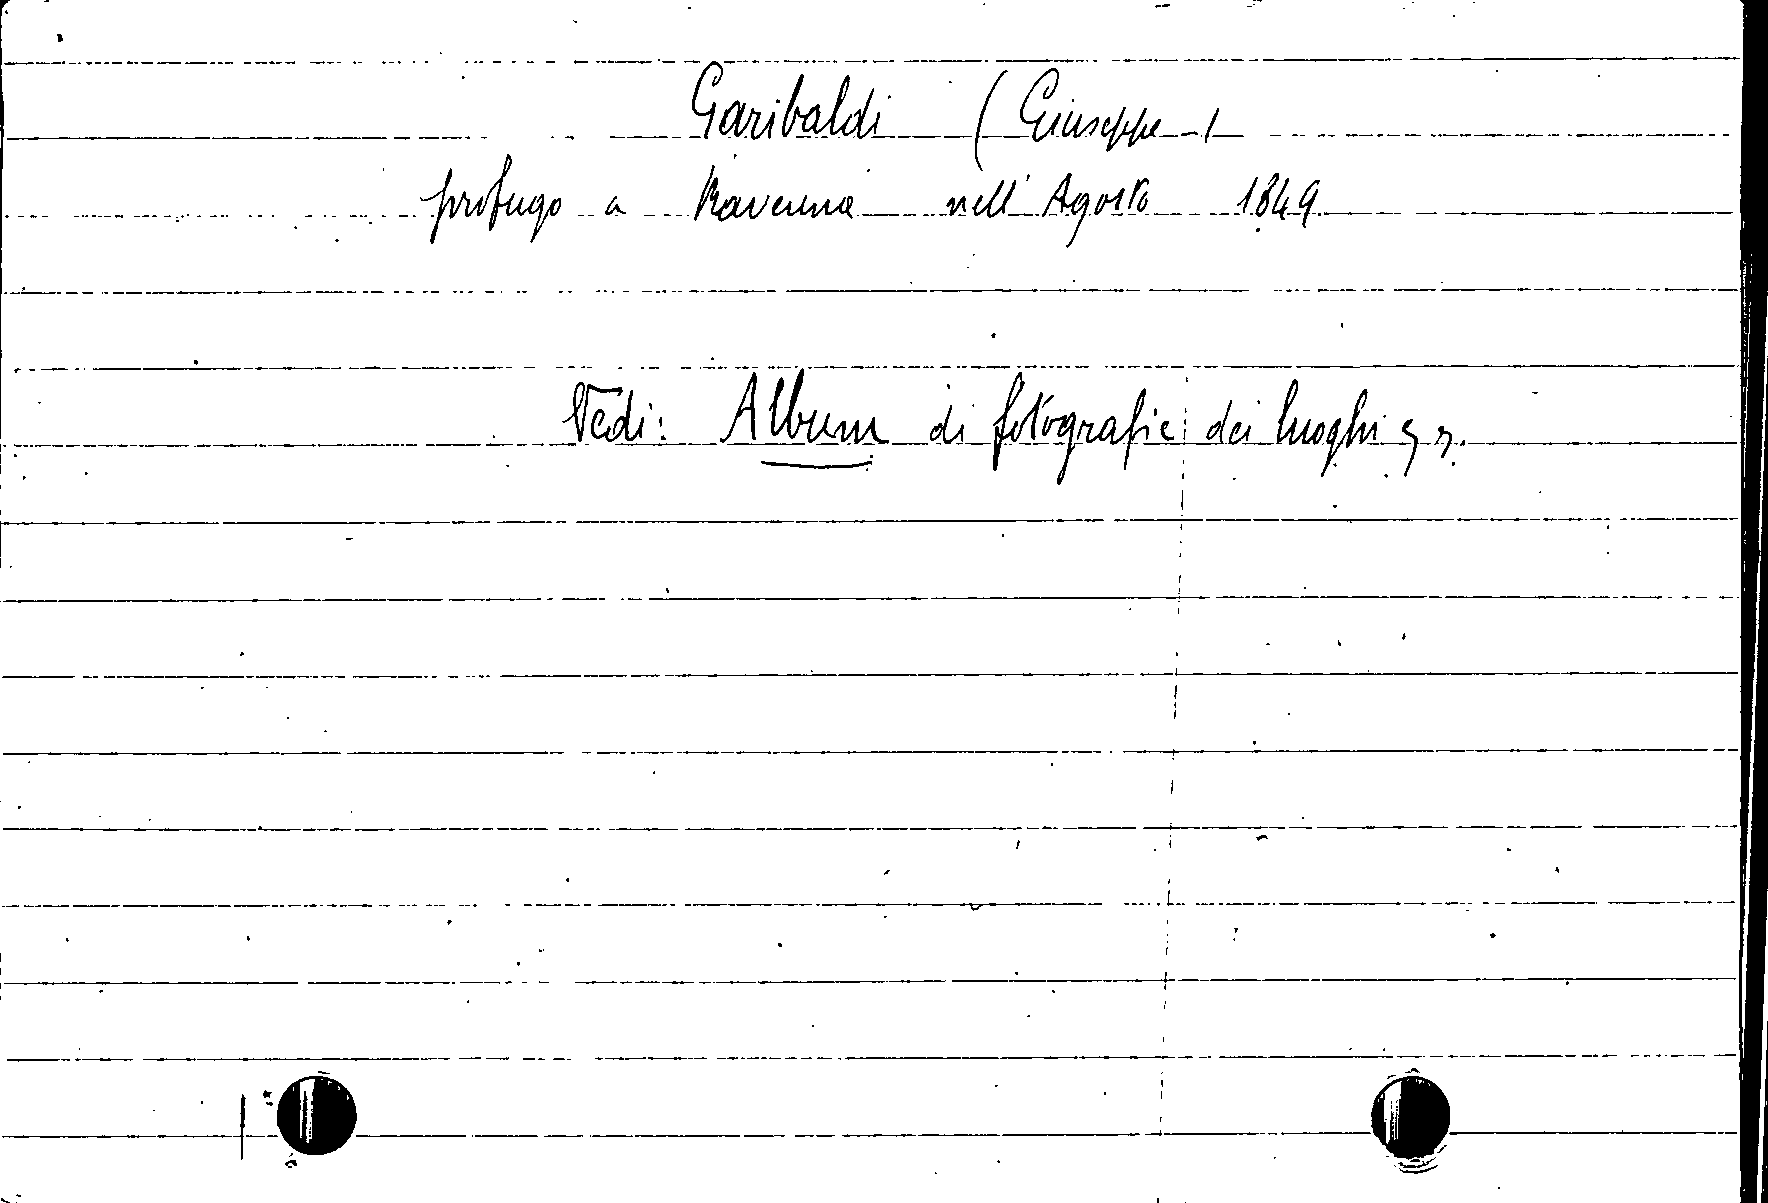 Garibaldi (Giuseppe)
profugo a Ravenna nell'Agosto 1849
Vedi: Album di fotografie dei luoghi